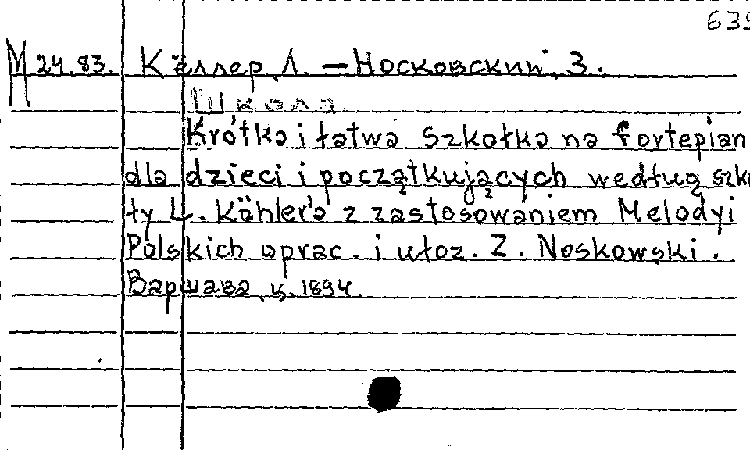 639
М 24.83. Кёллер, Л. — Носковский, З.
Школа
Krótka i łatwa szkołka na fortepian
dla dzieci i początkujących według szko
ły L. Köhler'a z zastosowaniem Melodyi
Polskich oprac. i ułoz. Z. Noskowski.
Варшава, ц. 1894.